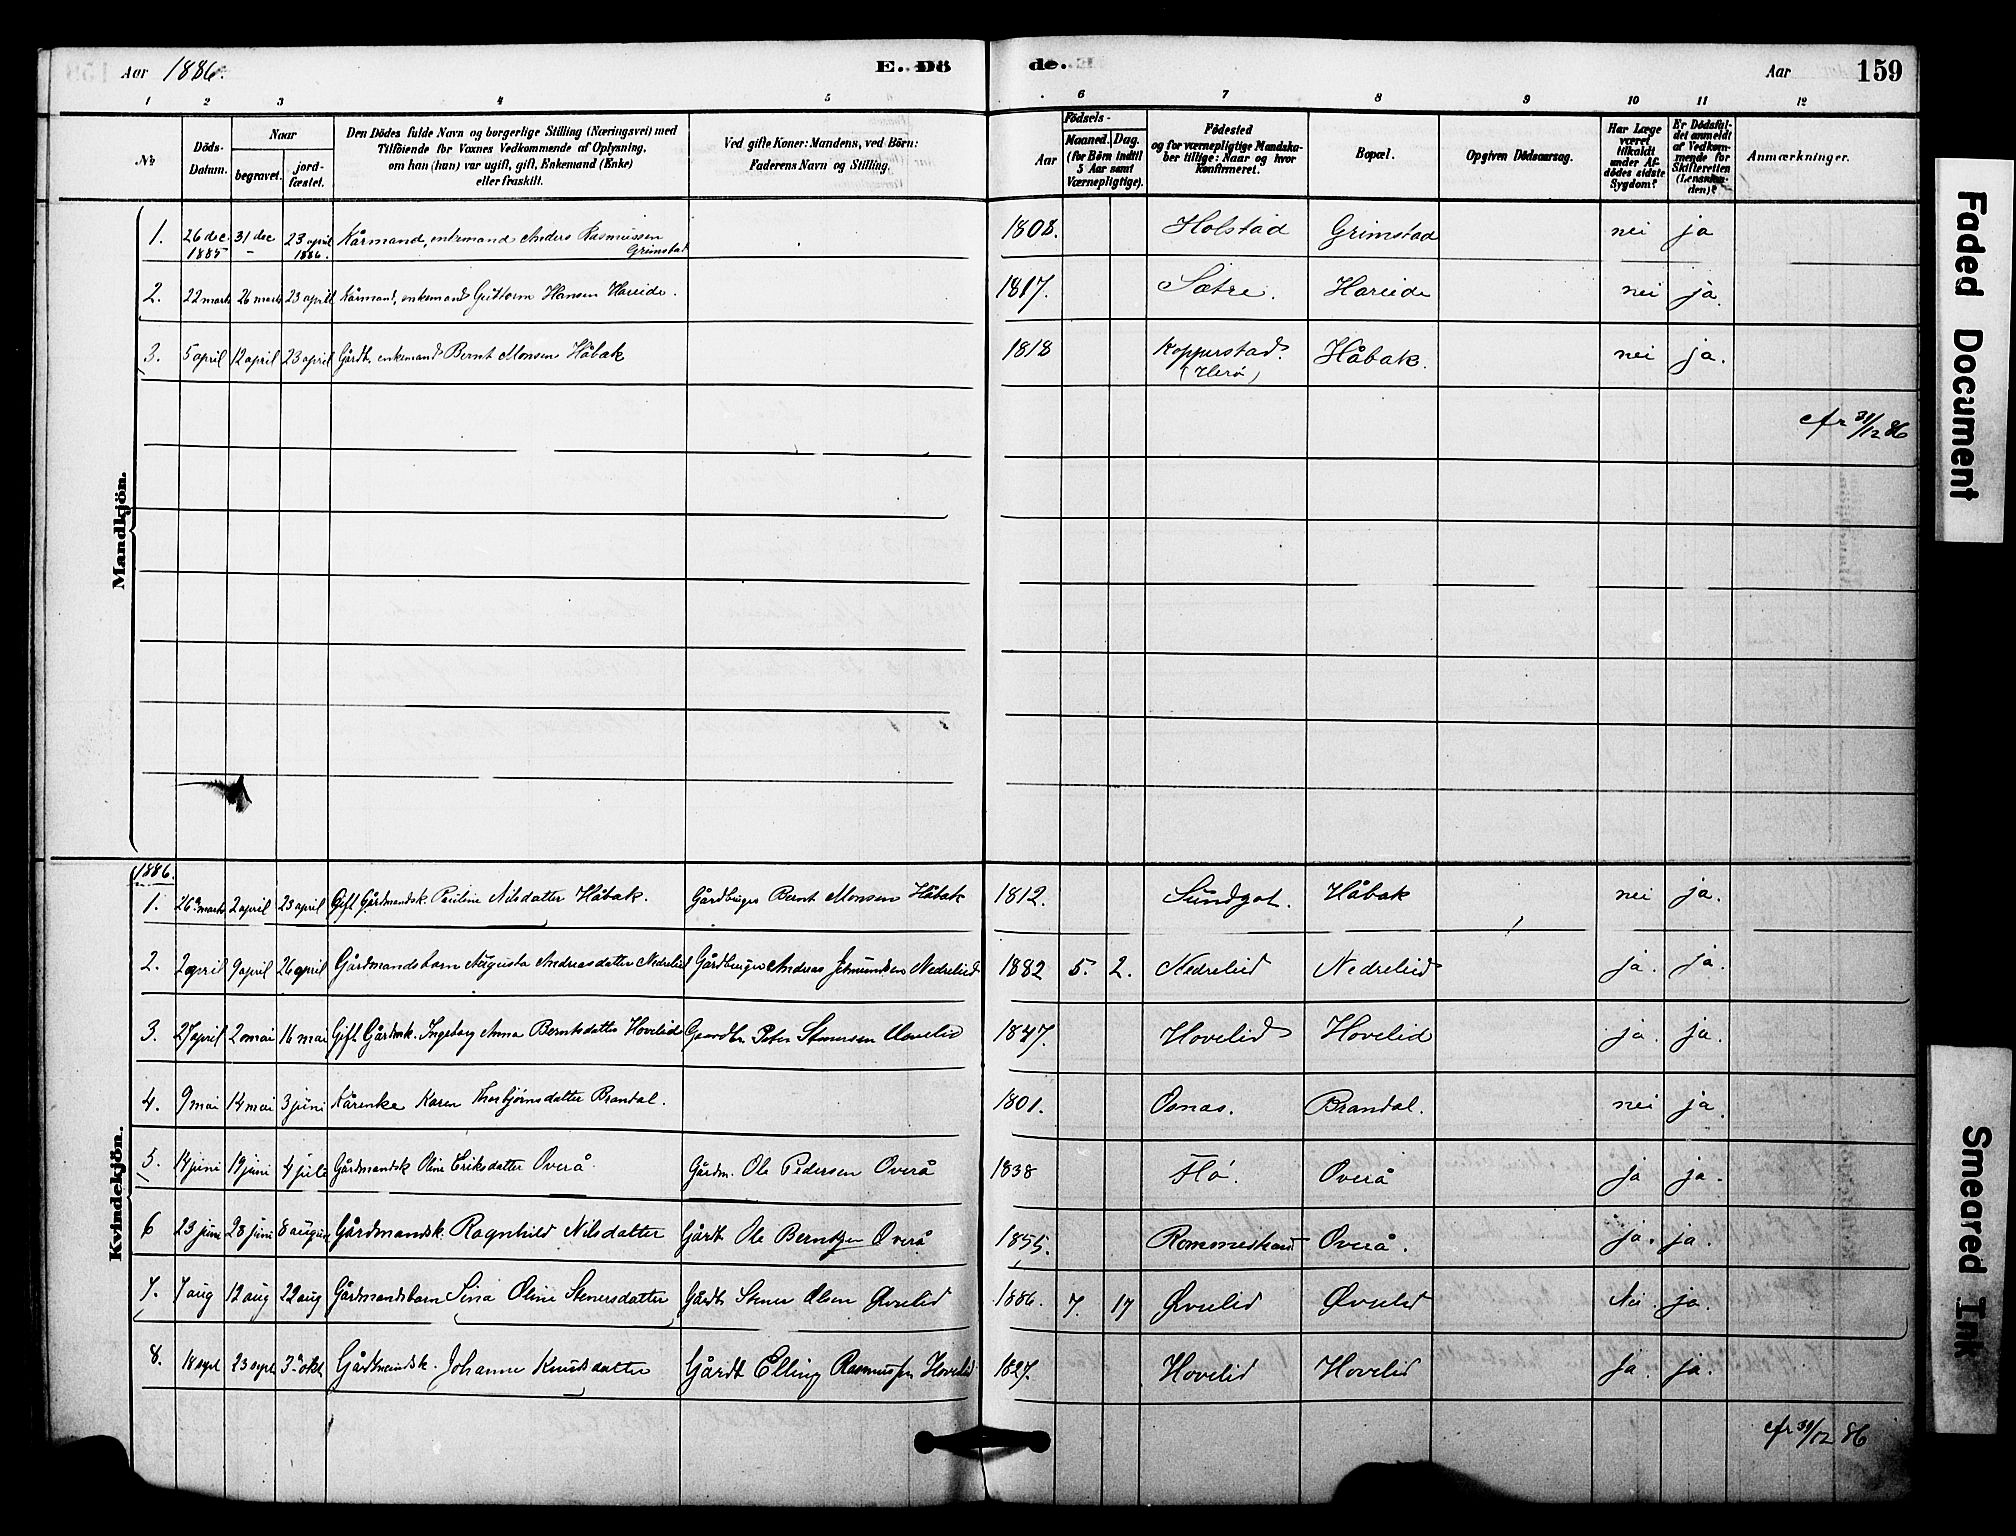 Aar 1886. E. Dö de. Aar 159
1 2 3 4 5 6 7 8 9 10 11 12
No Döds-Datum. Naar begravet. jord-fæstet. Den Dödes fulde Navn og borgerlige Stilling (Næringsvei) med Tilföiende for Voxnes Vedkommende af Oplysning, om han (hun) var ugift, gift, Enkemand (Enke) eller fraskilt. Ved gifte Koner: Mandens, ved Börn: Faderens Navn og Stilling. Aar Födsels- Maaned. Dag. (for Börn indtil 5 Aar samt Værnepligtige). Födested og for værnepligtige Mandskaber tillige: Naar og hvor Konfirmeret. Bopæl. Opgiven Dödsaarsag. Har Læge været tilkaldt under Afdödes sidste Sygdom? Er Dödsfaldet anmeldt af Vedkommende for Skifteretten (Lensmanden)? Anmærkninger.
Mandkjön.
1. 26 dec. 1885 31 dec - 23 april 1886. Kårmand, enkemand Anders Rasmussen Grimstad 1808. Holstad Grimstad nei ja
2. 22 marts 26 marts 23 april Kårmand, enkemand Guttorm Hansen Hareide. 1817. Sætre. Hareide nei ja.
3. 5 april 12 april 23 april Gårdb. enkemand Bernt Monsen Håbak 1818 Kopperstad. (Herø) Håbak. nei ja.
cfr 31/12 86
Kvindekjön.
1886.
1. 26 marts 2 april 23 april Gift Gårdmandsk. Pauline Nilsdatter Håbak. Gårdbruger Bernt Monsen Håbak 1812. Sundgot. Håbak nei ja.
2. 2 april 9 april 26 april Gårdmandsbarn Augusta Andreasdatter Nedrelid Gårdbruger Andreas Jetmundsen Nedrelid 1882 5. 2. Nedrelid Nedrelid ja. ja.
3. 27 april 2 mai 16 mai Gift Gårdmk. Ingeborg Anna Berntsdatter Hovelid Gaardbr. Peter Stenersen Hovelid 1847. Hovelid Hovelid ja. ja.
4. 9 mai 14 mai 3 juni Kårenke Karen Thorbjørnsdatter Brandal. 1801. Osnas. Brandal. nei ja.
5. 14 juni 19 juni 4 juli Gårdmandsk Oline Eriksdatter Overå. Gårdm. Ole Pedersen Overå 1838 Flå. Overå ja ja.
6 23 juni 28 juni 8 august Gårdmandsk. Ragnhild Nilsdatter Gårdb Ole Berntsen Overå 1855. Overå. ja. ja.
7. 7 aug 12 aug 22 aug Gårdmandsbarn Sina Oline Stenersdatter Gårdb Stener Olsen Øvrelid 1886. 7. 17 Øvrelid Øvrelid Nei. ja.
8. 18 sept 23 sept 3 okt Gårdmandsk. Johanne Knudsdatter Gårdb Elling Rasmussen Hovelid 1827. Hovelid Hovelid ja. ja.
cfr 31/12 86
Faded Document
Smeared Ink